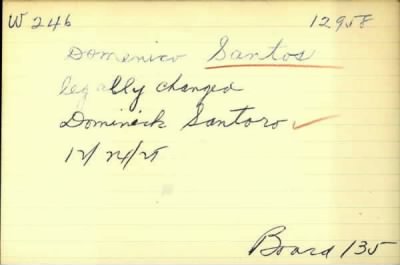 W 246 12958
Domenico Santos
legally changed
Dominick Santoro ✓
12/24/25
Board 135